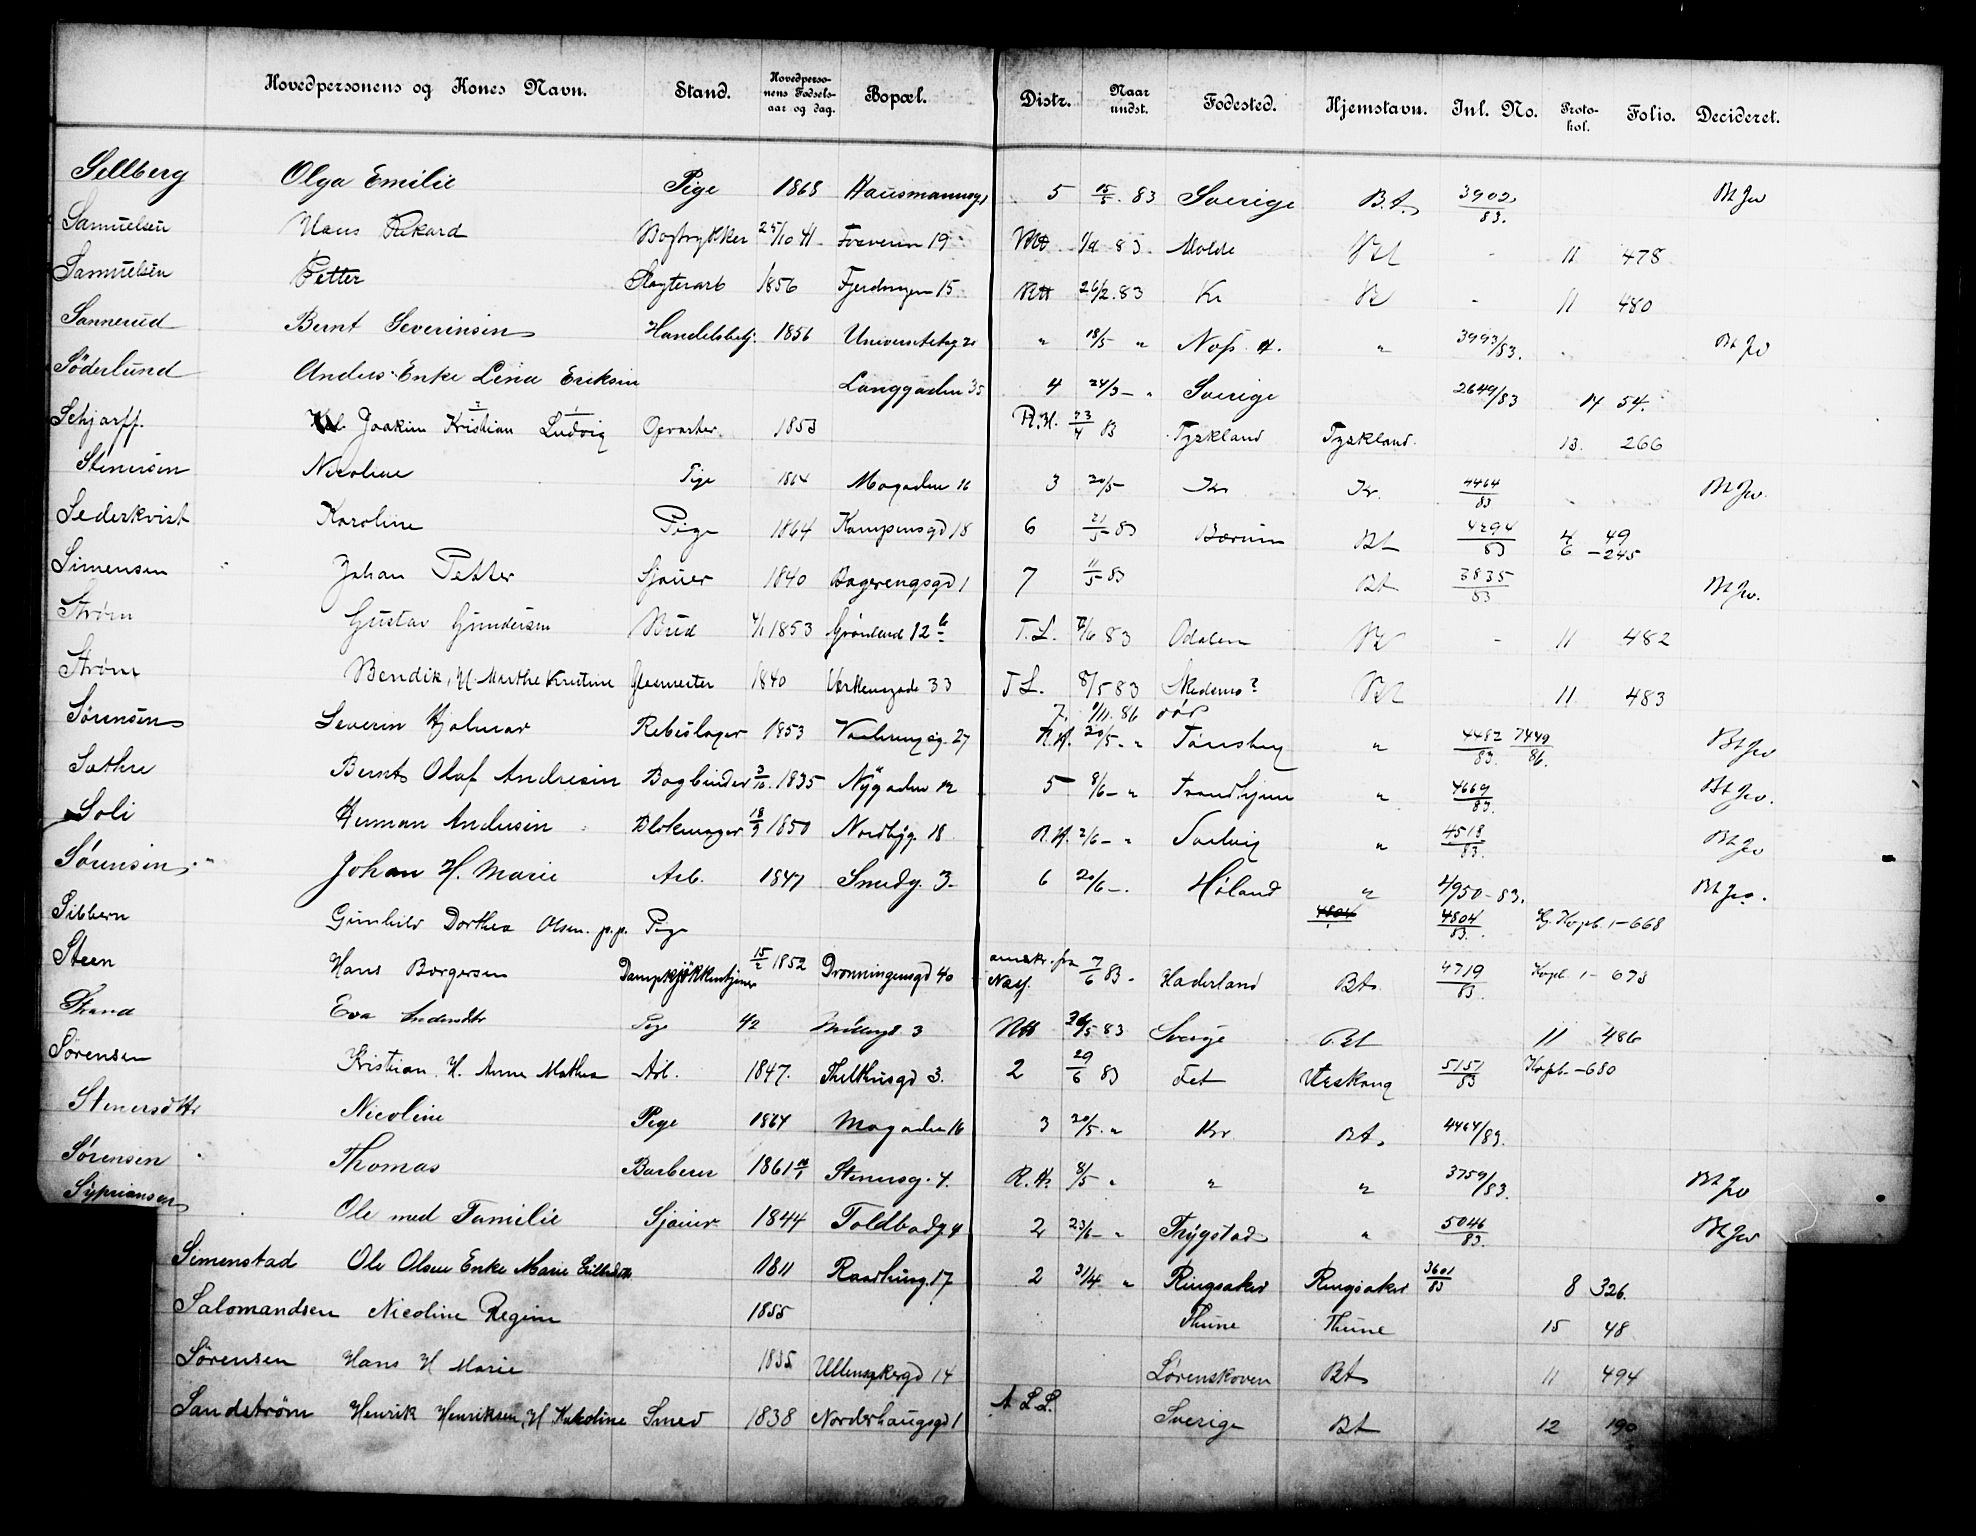 Hovedpersonens og Kones Navn. Stand. Hovedpersonens Fødselsaar og dag. Bopæl. Distr. Naar undst. Fødested. Hjemstavn. Inl. No. Protokol. Folio. Decideret.
Sellberg Olga Emilie Pige 1868 Hausmannsg 5 15/5 83 Sverige B.t. 3902/83.
Samuelsen Hans Rikard Bogtrykker 25/10 41 19 83. Molde 11 478
Samuelsen Petter Slagterarb 1856 Fjerdingen 15 26/2. 83 Kr - 11 480
Sannerud Bernt Severinsen Handelsbetj. 1856 Universitetsg 20 " 18/5 " " 3993/83.
Söderlund Anders Enke Lena Eriksen Langgaden 35 4 24/3 - " Sverige 2649/83 14 54.
Schjarff. Joakim Kristian Ludvig Opvarter. 1853 R.H. 23/4 83 Tyskland Tyskland. 13. 266
Stenersen Nicoline Pige 1864 Møgaden 16 3 20/5 - Kr Kr. 4464/83
Sederkvist Karoline Pige 1864 Kampensgd 18 6 21/5 83 Bærum Bt 4294/83 4 49 6 - 245
Simensen Johan Petter Sjauer 1840 Aagerengsgd 1 7 11/5 83 Bt 3835/83
Strøm Gustav Gundersen Bud 1853 Grønland 12 b T.L. 83 Odalen - 11 482
Strøm Bendik, H Marthe Kristine 1840 33 T L. 8/5 83 11 483
7. 1/11. 86 død
Sørensen Severin Hjalmar Rebslager 1853 Vaalerengsg. 27 R.H. 20/5 - " Tønsberg " 4482/83. 7449/86.
Sathre Bernt Olaf Andresen Bogbinder 3/10. 1835 Nÿgaden 12 5 8/6 - " Trondhjem " 4669/83.
Soli Herman Andersen Blikmager 18/9 1850 Nordbÿg. 18 R.H. 2/6 - " Svelvig " 4518/83.
Sørensen. Johan H. Marie Arb. 1847 Smedg. 3. 6 20/6 -. Høland " 4950 - 83.
Sibbern Gunhild Dorthea Olsen. p.p. Pige 4804 4804/83. Kopb. 1 - 668
Steen Hans Borgersen Dampkjøkkentjener 15/2 1852 Dronningensgd 40 omskr. fra 7/6 83 - Haderland Bt. 4719/83. Kopb. 1 - 673
Strand Eva Andersdtr Pige 42 Møllergd 3 83 Sverige 11 486
Sørensen Kristian. H. Anne Mathea Arb. 1847. 3. 2 29/6 83 Fet Urskoug 5151/83 Kopb. - 680
Stenersdtr Nicoline Pige 1864 Møgaden 16 3 20/5. " Kr. Bt. 4464/83.
Sørensen Thomas Barberer 1861 Stenersg. 4. R.H. 8/5 " " " 3759/83.
Sypriansen Ole med Familie Sjauer 1844 Toldbodg. 4 2 23/6 - " Trÿgstad " 5046/83.
Simenstad Ole Olsen Enke Marie 1811 Raadhusg. 17 2 3/4 " Ringsaker Ringsaker 3601/83 8 326.
Salomandsen Nicoline Regine 1855 Thune Thune 15 48
Sørensen Hans H Marie 1835 Ullensakergd 14 Lørenskoven Bt 11 494
Sandstrøm Henrik Henriksen, H Karoline Smed 1838 Norderhaugsgd 1 Sverige Bt 12 190